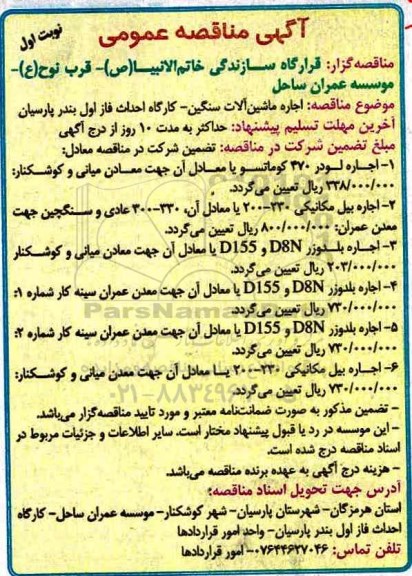 آگهی مناقصه عمومی
نوبت اول
مناقصه‌گزار: قرارگاه سازندگی خاتم‌الانبیا(ص)- قرب نوح(ع)-
موسسه عمران ساحل
موضوع مناقصه: اجاره ماشین‌آلات سنگین- کارگاه احداث فاز اول بندر پارسیان
آخرین مهلت تسلیم پیشنهاد: حداکثر به مدت ۱۰ روز از درج آگهی
مبلغ تضمین شرکت در مناقصه: تضمین شرکت در مناقصه معادل:
۱- اجاره لودر ۴۷۰ کوماتسو یا معادل آن جهت معادن میانی و کوشکنار:
۳۳۸/۰۰۰/۰۰۰ ریال تعیین می‌گردد.
۲- اجاره بیل مکانیکی ۳۳۰-۲۰۰ یا معادل آن، ۳۳۰-۳۰۰ عادی و سنگچین جهت
معدن عمران: ۸۰۰/۰۰۰/۰۰۰ ریال تعیین می‌گردد.
۳- اجاره بلدوزر D8N و D155 یا معادل آن جهت معادن میانی و کوشکنار
۲۰۳/۰۰۰/۰۰۰ ریال تعیین می‌گردد.
۴- اجاره بلدوزر D8N و D155 یا معادل آن جهت معدن عمران سینه کار شماره ۱:
۷۳۰/۰۰۰/۰۰۰ ریال تعیین می‌گردد.
۵- اجاره بلدوزر D8N و D155 یا معادل آن جهت معدن عمران سینه کار شماره ۲:
۷۳۰/۰۰۰/۰۰۰ ریال تعیین می‌گردد.
۶- اجاره بیل مکانیکی ۲۳۰-۲۰۰ یا معادل آن جهت معدن میانی و کوشکنار:
۷۳۰/۰۰۰/۰۰۰ ریال تعیین می‌گردد.
- تضمین مذکور به صورت ضمانت‌نامه معتبر و مورد تایید مناقصه‌گزار می‌باشد.
- این موسسه در رد یا قبول پیشنهاد مختار است. سایر اطلاعات و جزئیات مربوط در
اسناد مناقصه درج شده است.
- هزینه درج آگهی به عهده برنده مناقصه می‌باشد.
آدرس جهت تحویل اسناد مناقصه:
استان هرمزگان- شهرستان پارسیان- شهر کوشکنار- موسسه عمران ساحل- کارگاه
احداث فاز اول بندر پارسیان- واحد امور قراردادها
تلفن تماس: ۰۷۶۴۴۶۲۷۰۴۶- امور قراردادها